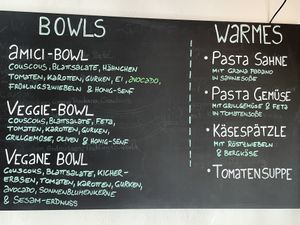 BOWLS
AMICI-BOWL
COUSCOUS, BLATTSALATE, HÄHNCHEN
TOMATEN, KAROTTEN, GURKEN, EI, AVOCADO,
FRÜHLINGSZWIEBELN & HONIG-SENF
VEGGIE-BOWL
COUSCOUS, BLATTSALATE, FETA,
TOMATEN, KAROTTEN, GURKEN,
GRILLGEMÜSE, OLIVEN & HONIG-SENF
VEGANE BOWL
COUSCOUS, BLATTSALATE, KICHER-
ERBSEN, TOMATEN, KAROTTEN, GURKEN,
AVOCADO, SONNENBLUMENKERNE
& SESAM-ERDNUSS
WARMES
• PASTA SAHNE
MIT GRANA PADANO
IN SAHNESOßE
• PASTA GEMÜSE
MIT GRILLGEMÜSE & FETA IN
TOMATENSOßE
• KÄSESPÄTZLE
MIT RÖSTZWIEBELN
& BERGKÄSE
• TOMATENSUPPE